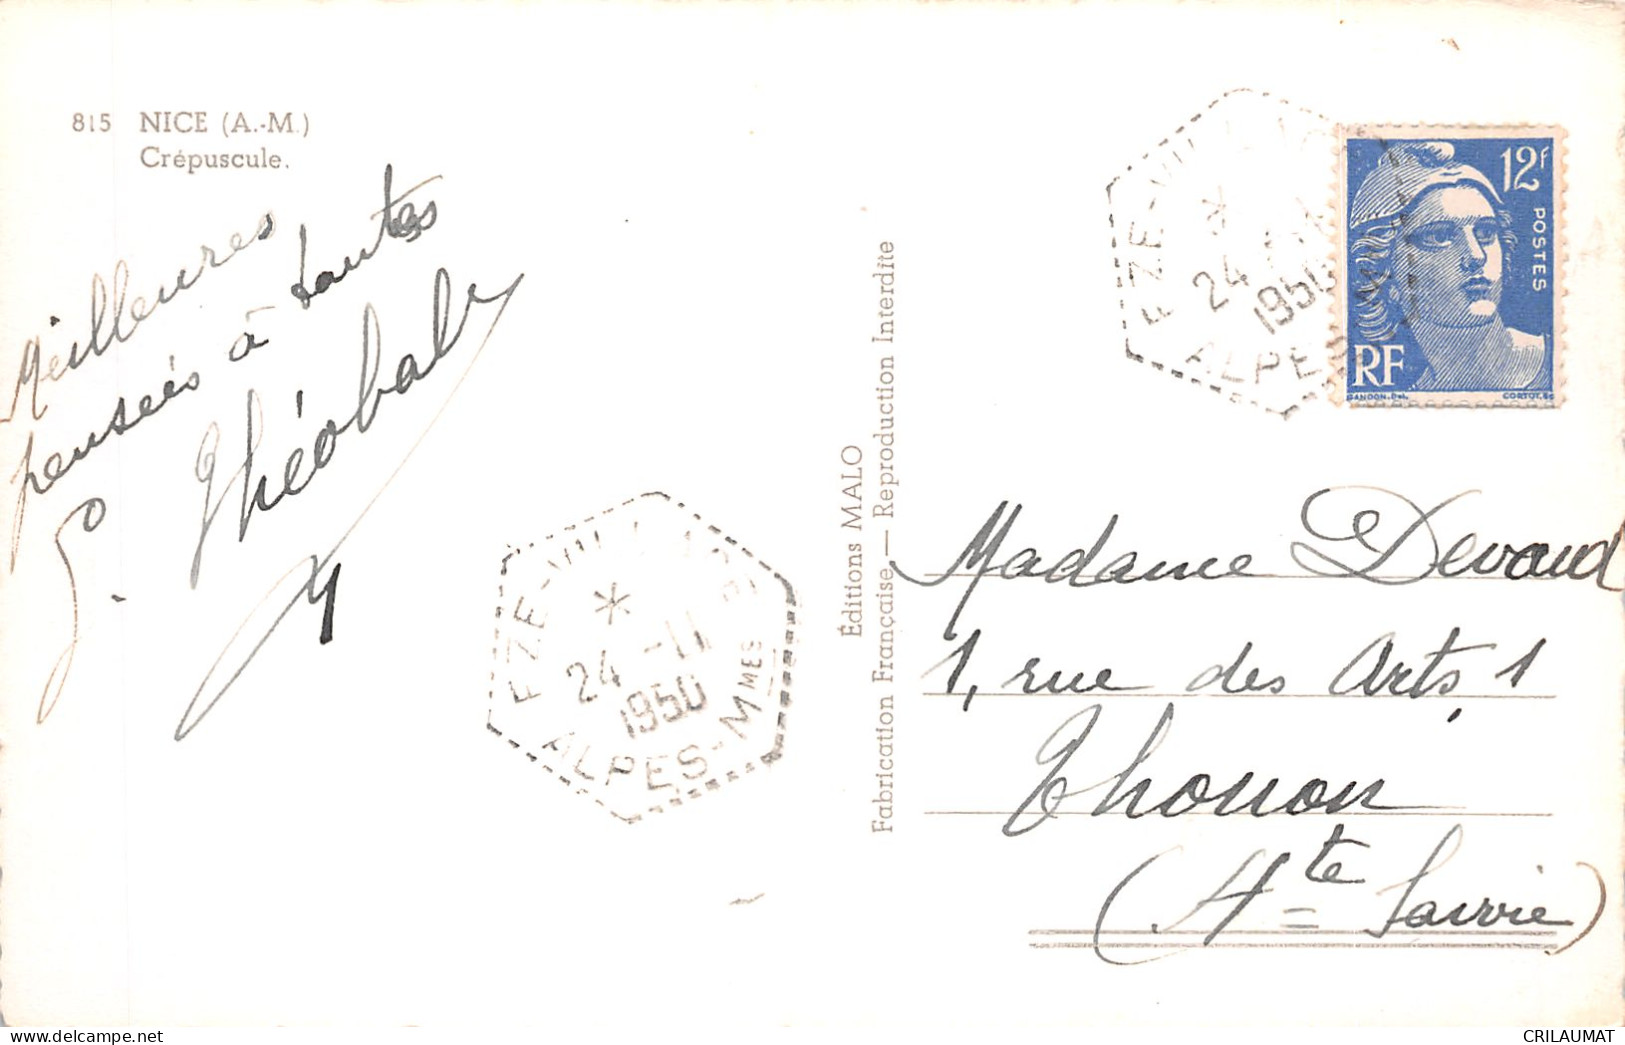 815 NICE (A.-M.)
Crépuscule.
Meilleures
pensées à toutes
Théobald
EZE-VILLAGE
*
24 -11
1950
ALPES-MMES
Éditions MALO
Fabrication Française — Reproduction Interdite
EZE-VILLAGE
*
24
1950
ALPES
12F
POSTES
RF
GANDON.Del.
CORTOT.Sc
Madame Devaud
1, rue des Arts, 1
Thonon
(Hte Savoie)
CRILAUMAT